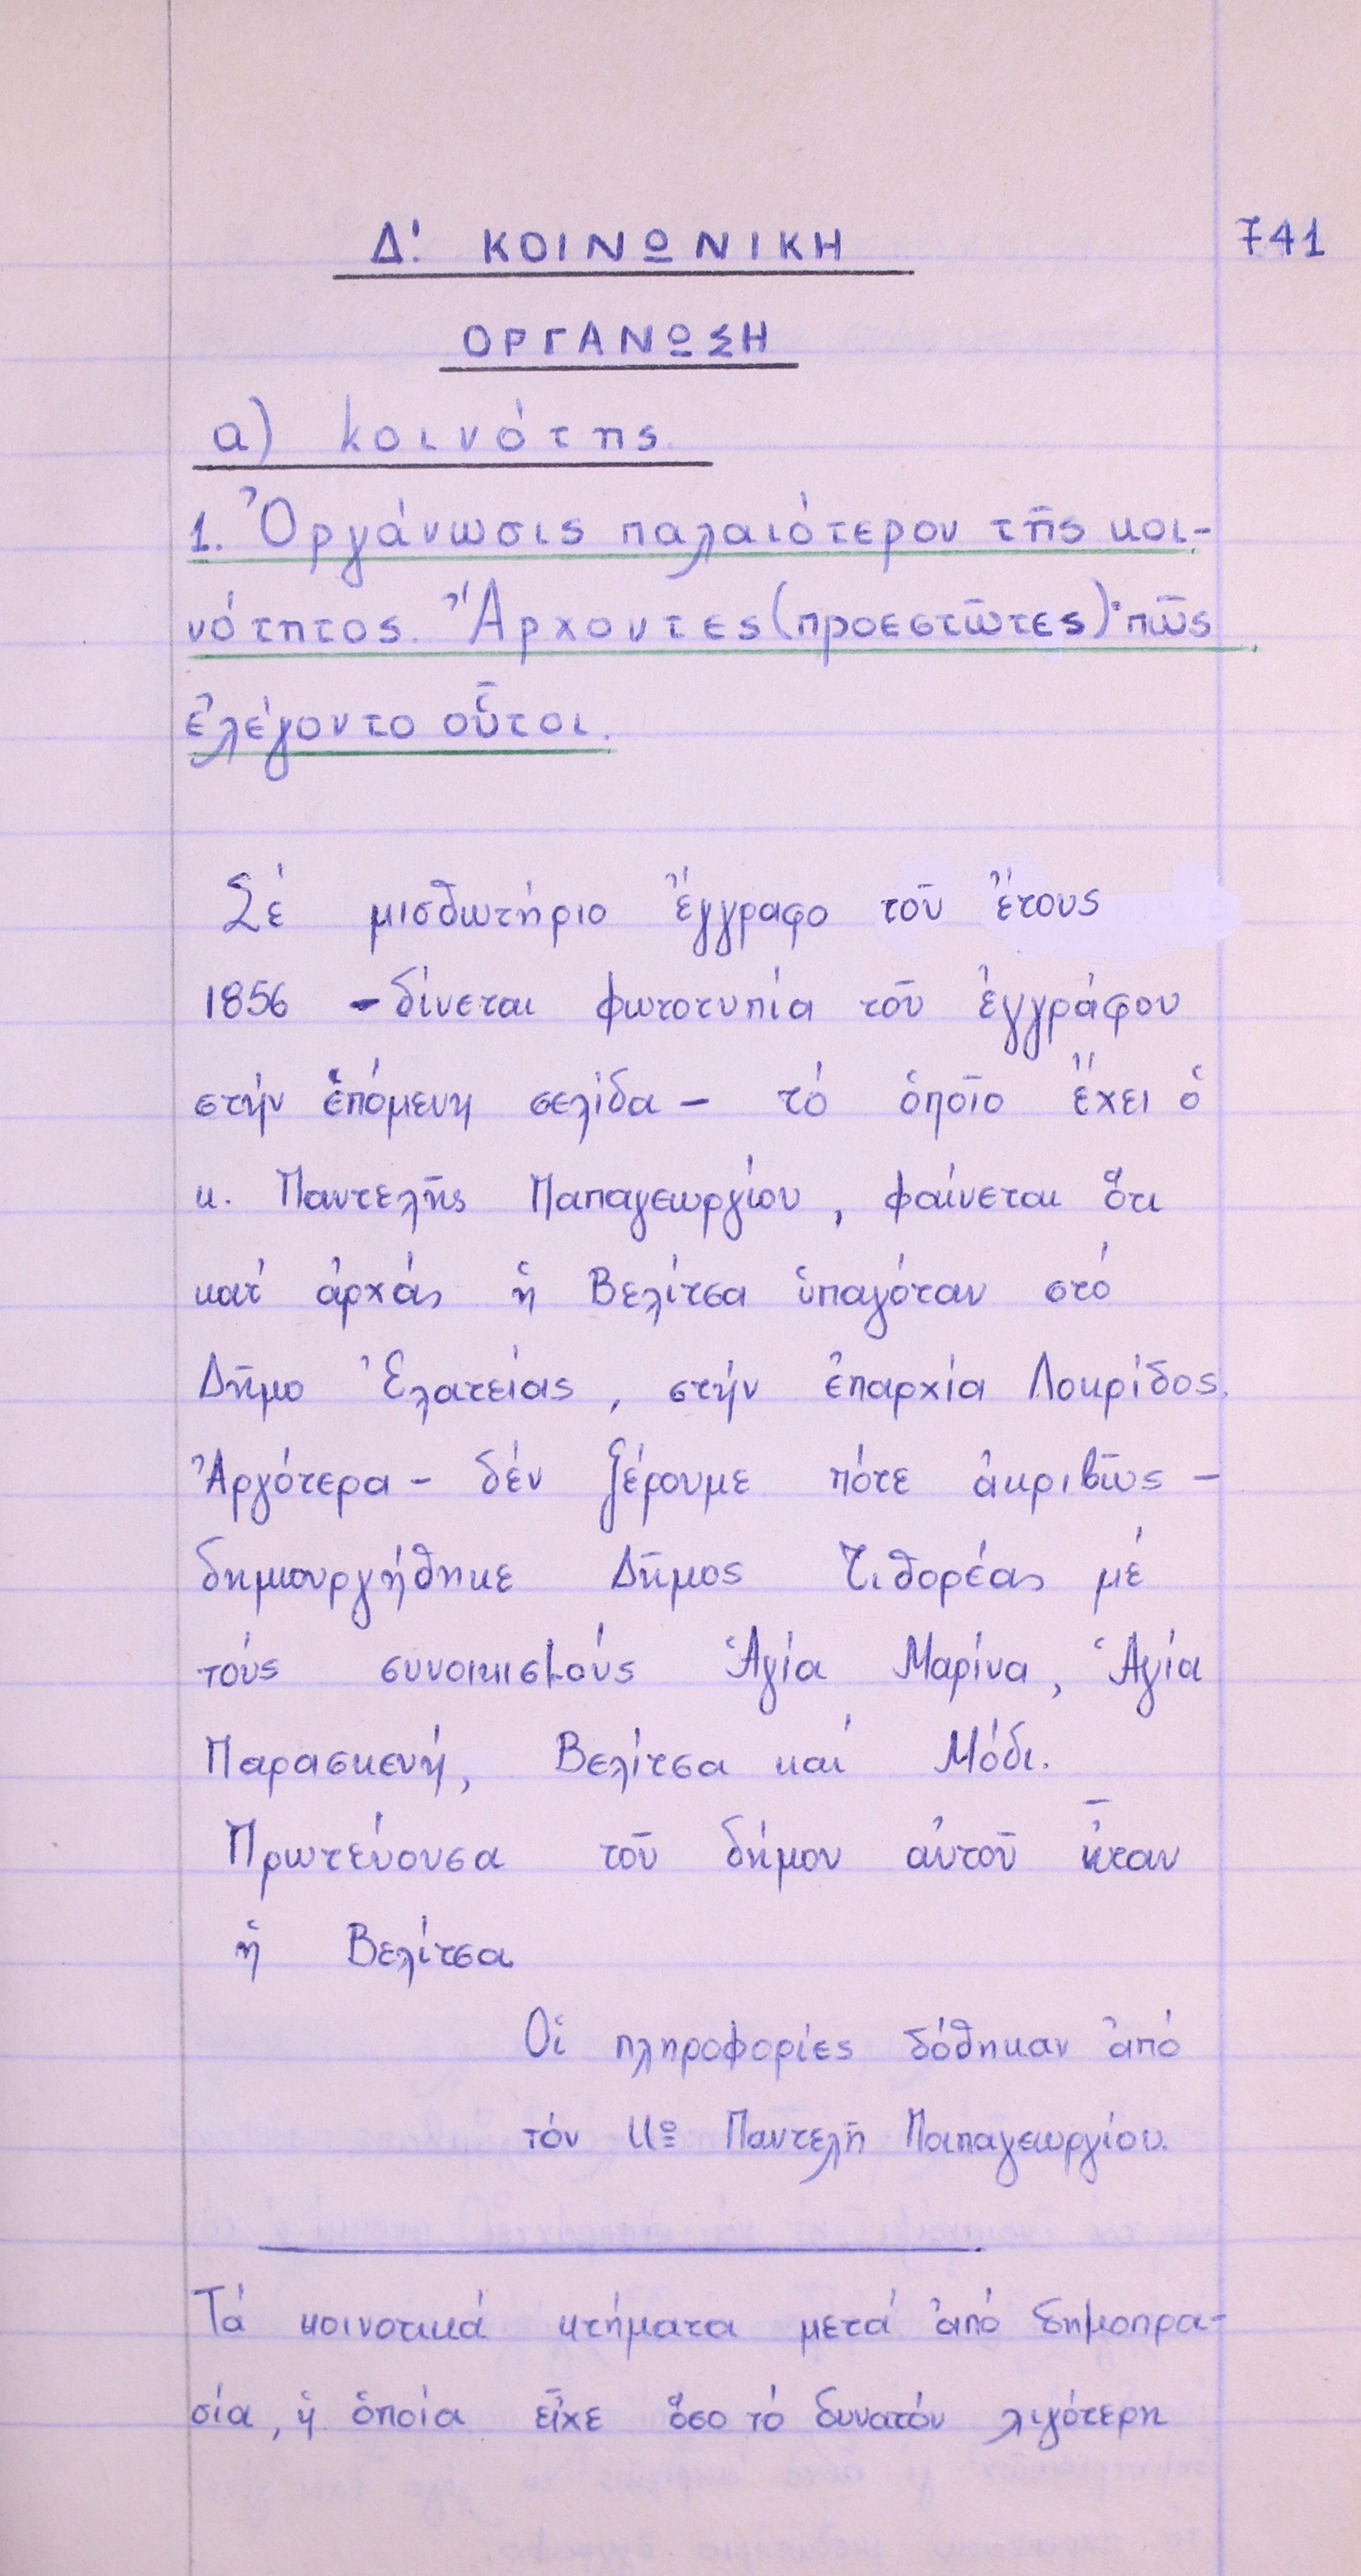 741
Δ! ΚΟΙΝΩΝΙΚΗ
ΟΡΓΑΝΩΣΗ
α) κοινότης.
1. Ὀργάνωσις παλαιότερον τῆς κοι-
νότητος. Ἄρχοντες (προεστῶτες)· πῶς
ἐλέγοντο οὗτοι.
Σέ μισθωτήριο ἔγγραφο τοῦ ἔτους
1856 - δίνεται φωτοτυπία τοῦ ἐγγράφου
στήν ἑπόμενη σελίδα - τό ὁποῖο ἔχει ὁ
κ. Παντελῆς Παπαγεωργίου, φαίνεται ὅτι
κατ' ἀρχάς ἡ Βελίτσα ὑπαγόταν στό
Δῆμο Ἐλατείας, στήν ἐπαρχία Λοκρίδος.
Ἀργότερα - δέν ξέρουμε πότε ἀκριβῶς -
δημιουργήθηκε Δῆμος Τιθορέας μέ
τούς συνοικισμούς Ἁγία Μαρίνα, Ἁγία
Παρασκευή, Βελίτσα καί Μόδι.
Πρωτεύουσα τοῦ δήμου αὐτοῦ ἦταν
ἡ Βελίτσα
Οἱ πληροφορίες δόθηκαν ἀπό
τόν κο Παντελῆ Παπαγεωργίου.
Τά κοινοτικά κτήματα μετά ἀπό δημοπρα-
σία, ἡ ὁποία εἶχε ὅσο τό δυνατόν λιγότερη